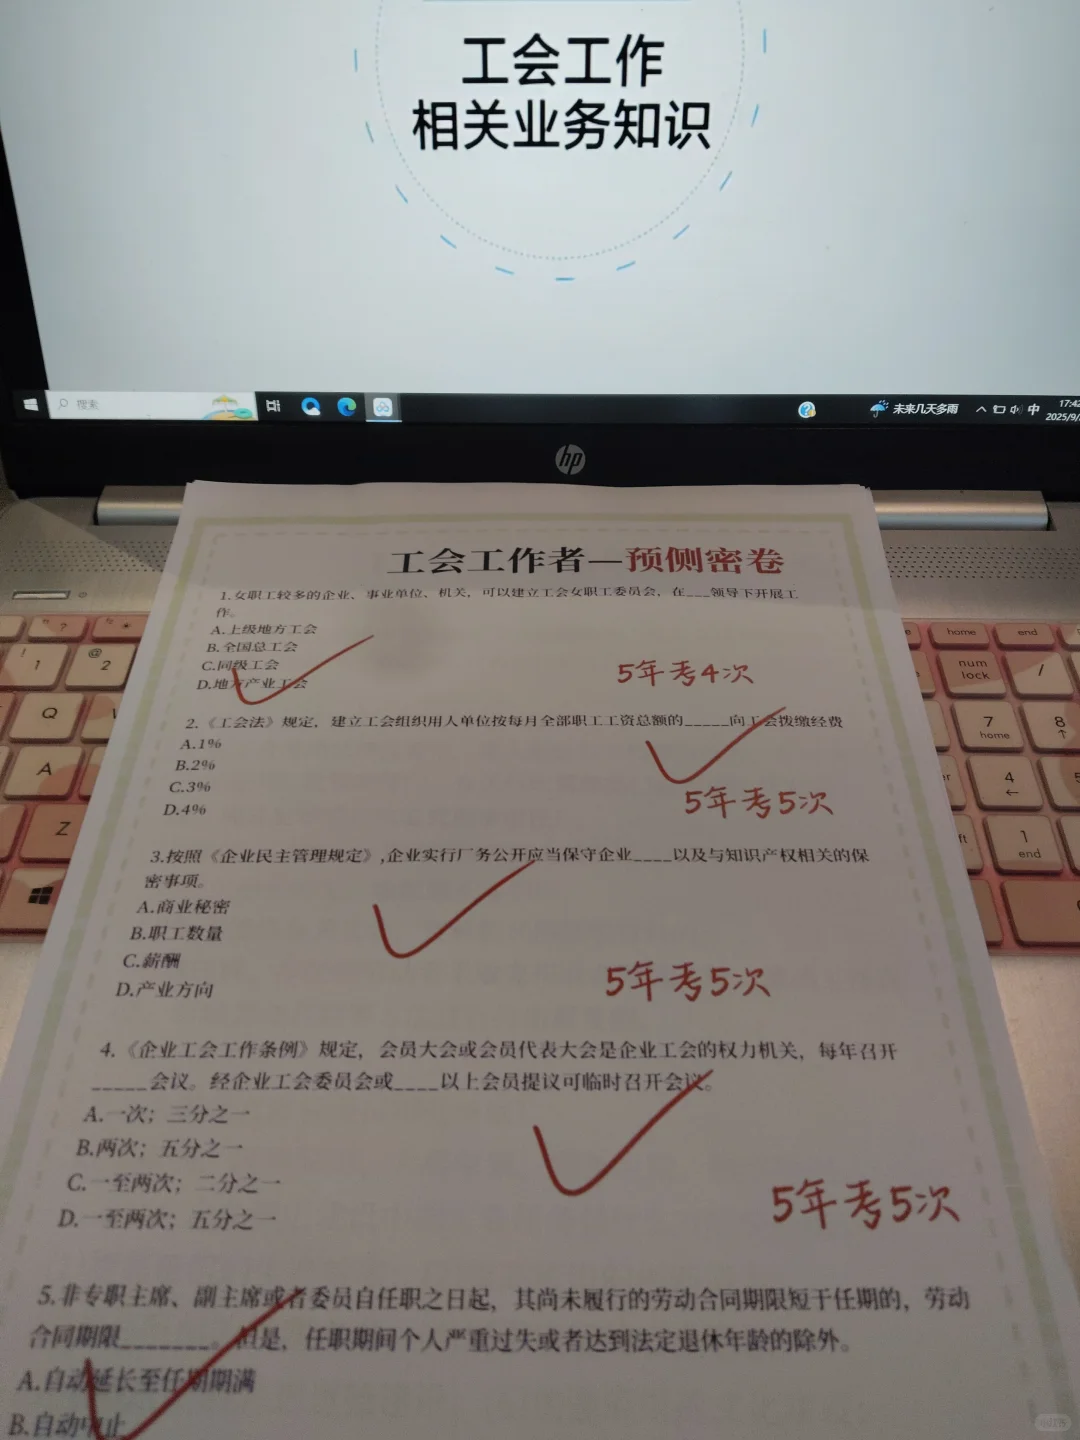 工会工作
相关业务知识
搜索
未来几天多雨
中
17:42
2025/9/
hp
工会工作者—预侧密卷
1.女职工较多的企业、事业单位、机关，可以建立工会女职工委员会，在___领导下开展工
作。
A.上级地方工会
B.全国总工会
C.同级工会
D.地方产业工会
5年考4次
2.《工会法》规定，建立工会组织用人单位按每月全部职工工资总额的_____向工会拨缴经费
A.1%
B.2%
C.3%
D.4%
5年考5次
3.按照《企业民主管理规定》,企业实行厂务公开应当保守企业____以及与知识产权相关的保
密事项。
A.商业秘密
B.职工数量
C.薪酬
D.产业方向
5年考5次
4.《企业工会工作条例》规定，会员大会或会员代表大会是企业工会的权力机关，每年召开
_____会议。经企业工会委员会或____以上会员提议可临时召开会议。
A.一次；三分之一
B.两次；五分之一
C.一至两次；二分之一
D.一至两次；五分之一
5年考5次
5.非专职主席、副主席或者委员自任职之日起，其尚未履行的劳动合同期限短于任期的，劳动
合同期限_______。但是，任职期间个人严重过失或者达到法定退休年龄的除外。
A.自动延长至任期期满
B.自动中止
! 1
@ 2
Q
A
Z
home
end
num lock
/
7 home
8
4
1 end